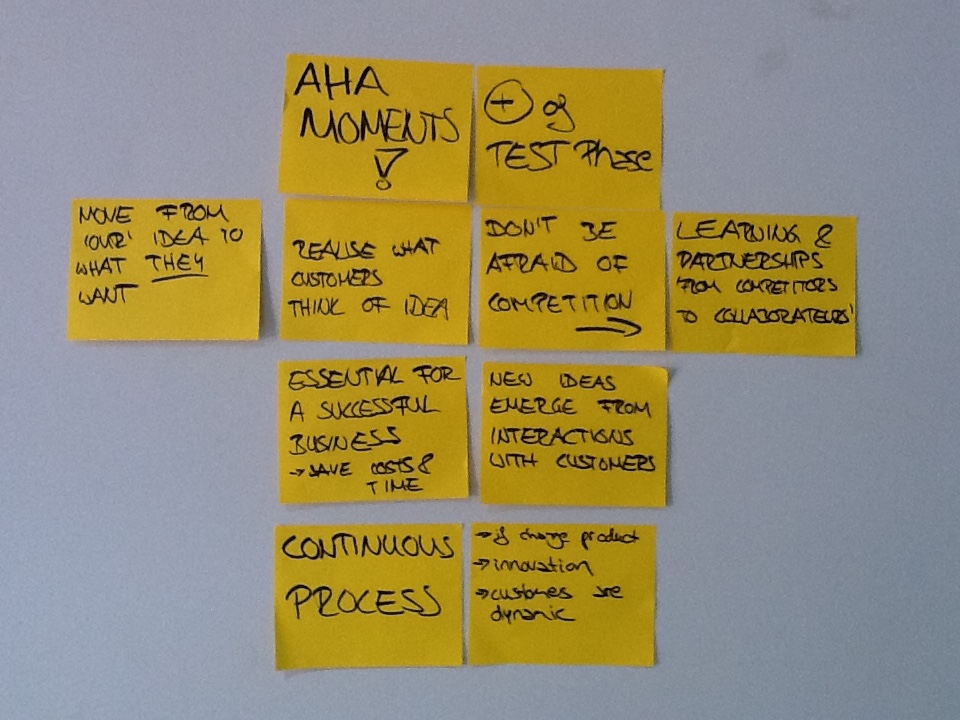 AHA
MOMENTS
!
+ of
TEST Phase
MOVE FROM
'OUR' IDEA TO
WHAT THEY
WANT
REALISE WHAT
CUSTOMERS
THINK OF IDEA
DON'T BE
AFRAID OF
COMPETITION
→
LEARNING &
PARTNERSHIPS
'FROM COMPETITORS
TO COLLABORATEURS'
ESSENTIAL FOR
A SUCCESSFUL
BUSINESS
→ SAVE COSTS &
TIME
NEW IDEAS
EMERGE FROM
INTERACTIONS
WITH CUSTOMERS
CONTINUOUS
PROCESS
→ if change product
→ innovation
→ customers are
dynamic